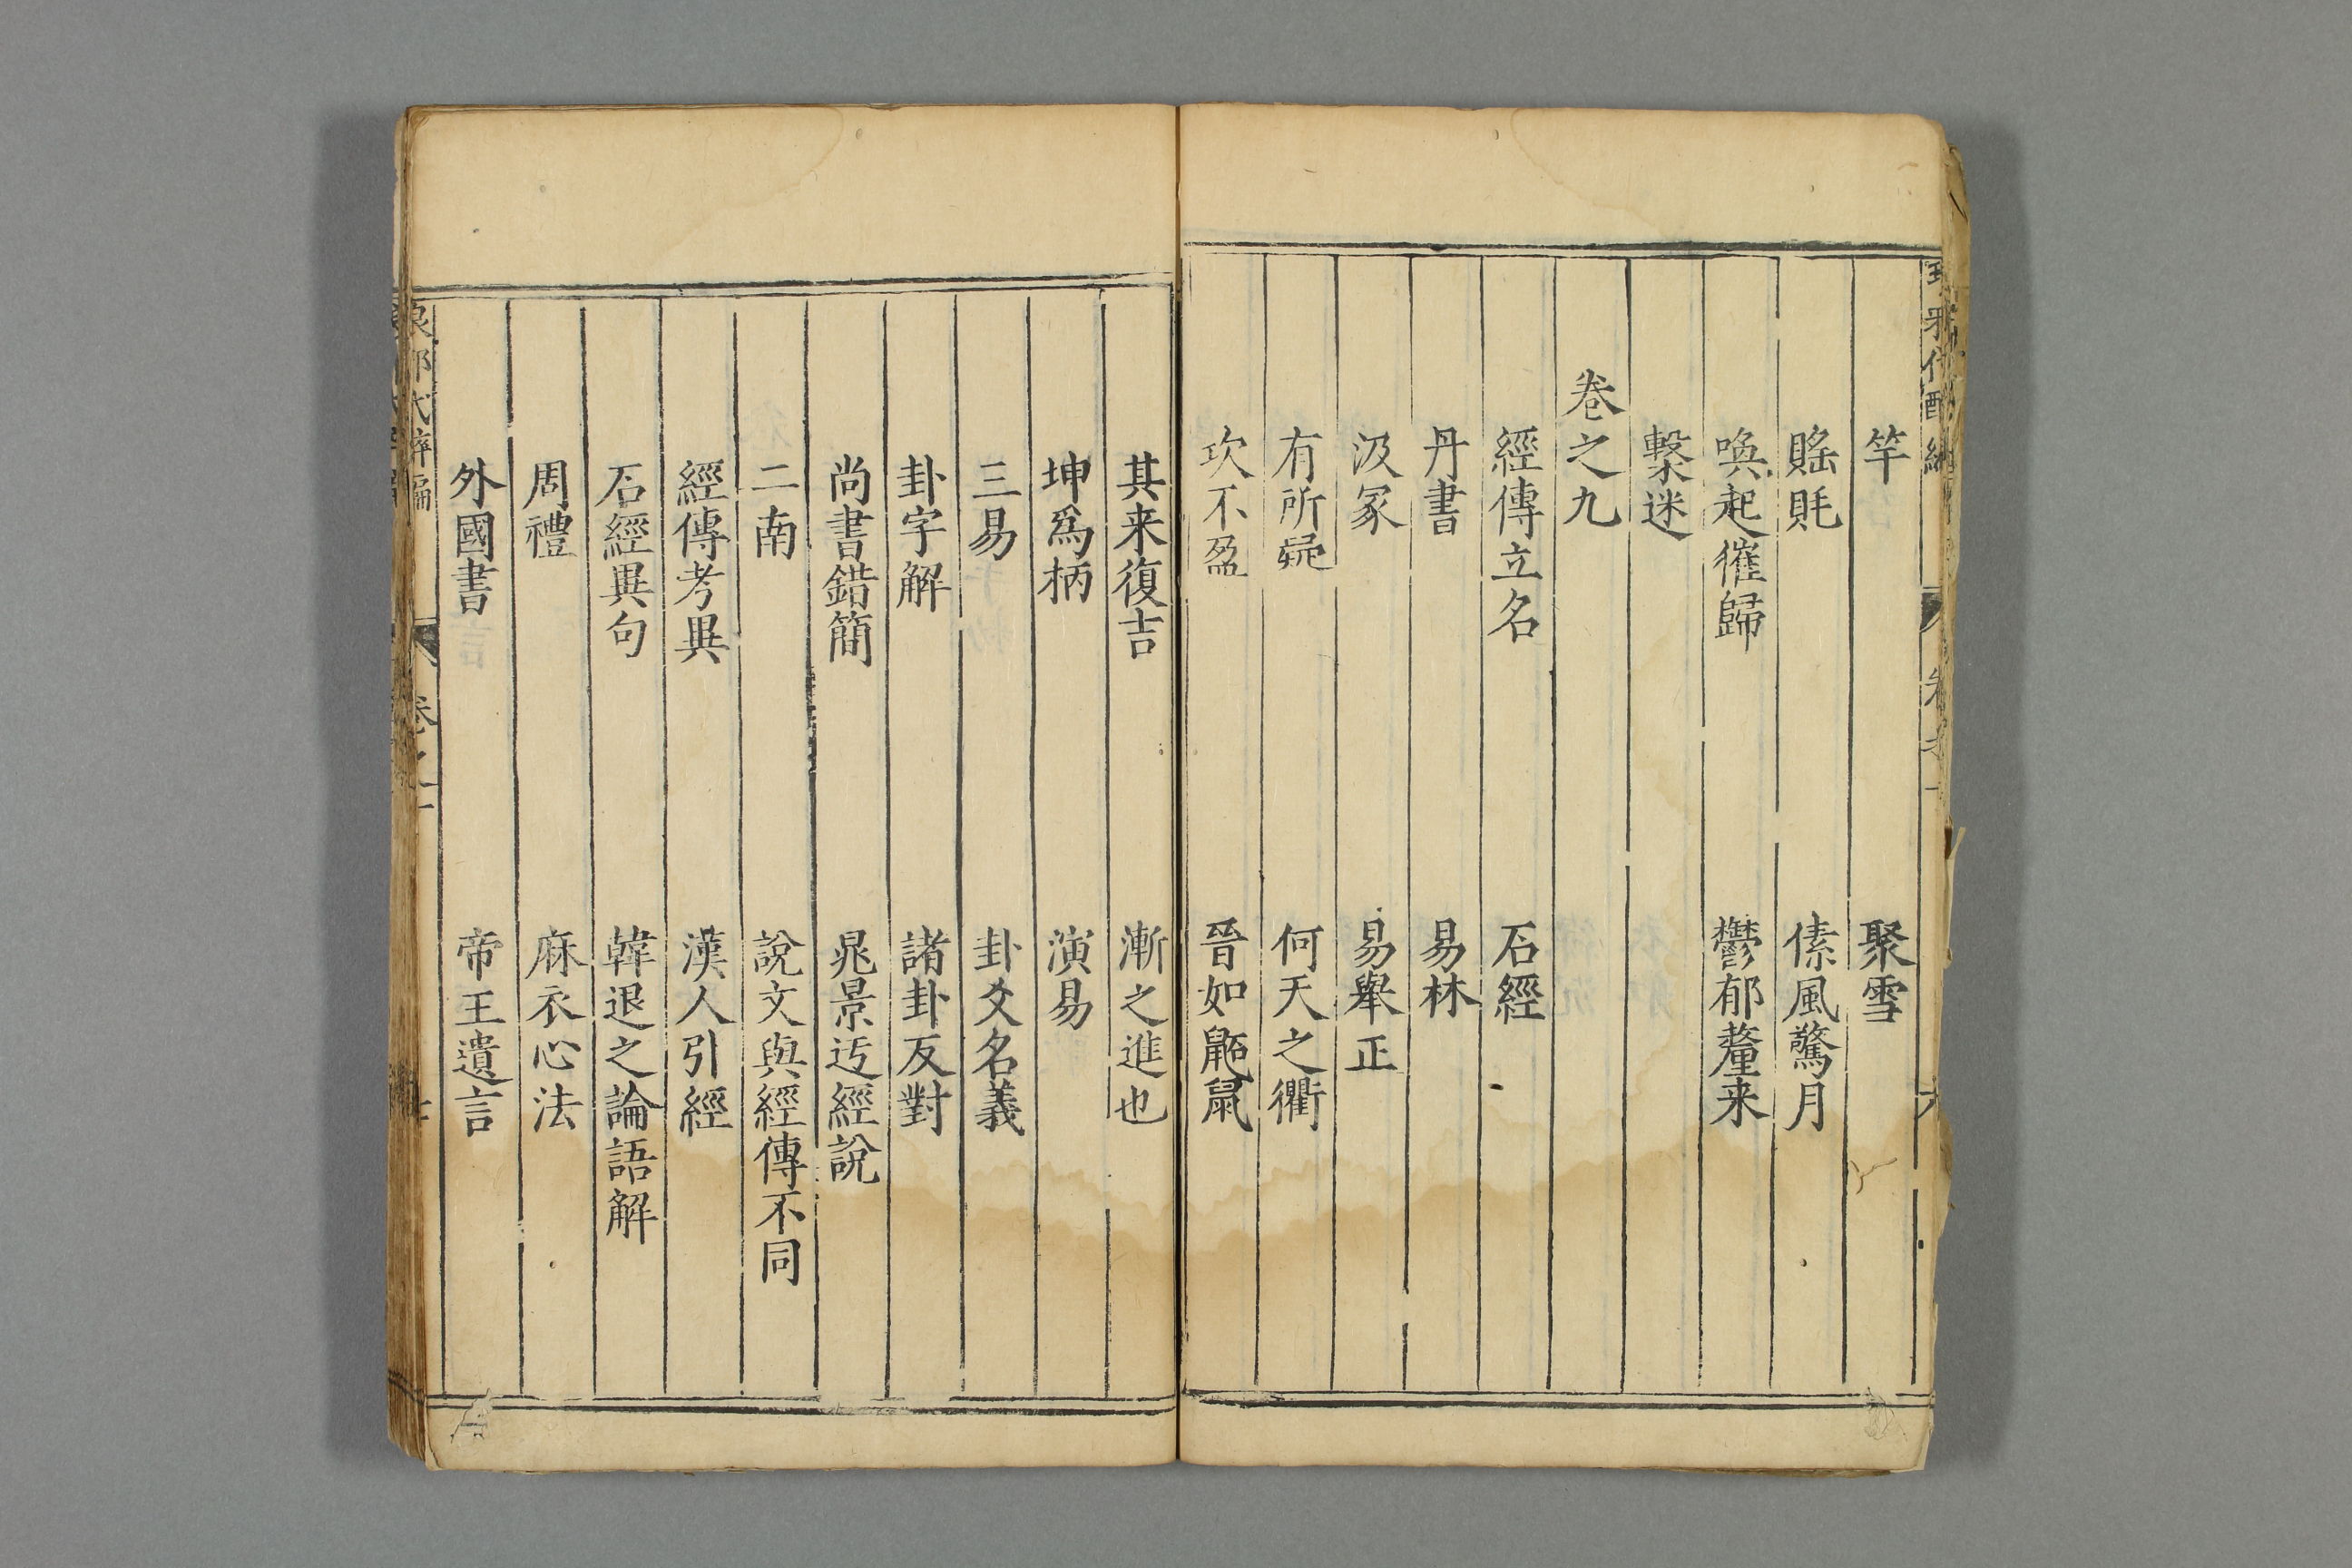 竿 聚雪
賂貹 傃風驚月
喚起催歸 鬱郁釐来
繫迷
卷之九
經傳立名 石經
丹書 易林
汲冢 易舉正
有所疑 何天之衢
坎不盈 晉如鼫鼠
其来復吉 漸之進也
坤爲柄 演易
三易 卦爻名義
卦字解 諸卦反對
尚書錯簡 晁景迃經說
二南 說文與經傳不同
經傳考異 漢人引經
石經異句 韓退之論語解
周禮 麻衣心法
外國書 帝王遺言